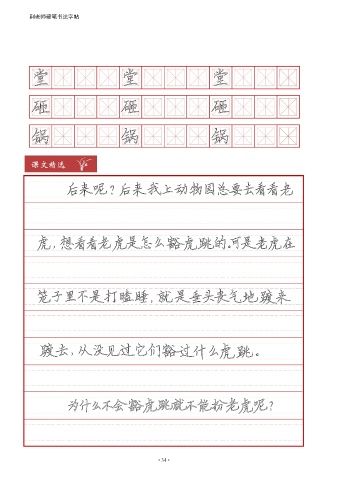 田老师硬笔书法字帖
堂 堂 堂
砸 砸 砸
锅 锅 锅
课文精选
后来呢?后来我上动物园总要去看看老
虎,想看看老虎是怎么豁虎跳的。可是老虎在
笼子里不是打瞌睡,就是垂头丧气地踱来
踱去,从没见过它们豁过什么虎跳。
为什么不会豁虎跳就不能扮老虎呢?
·34·